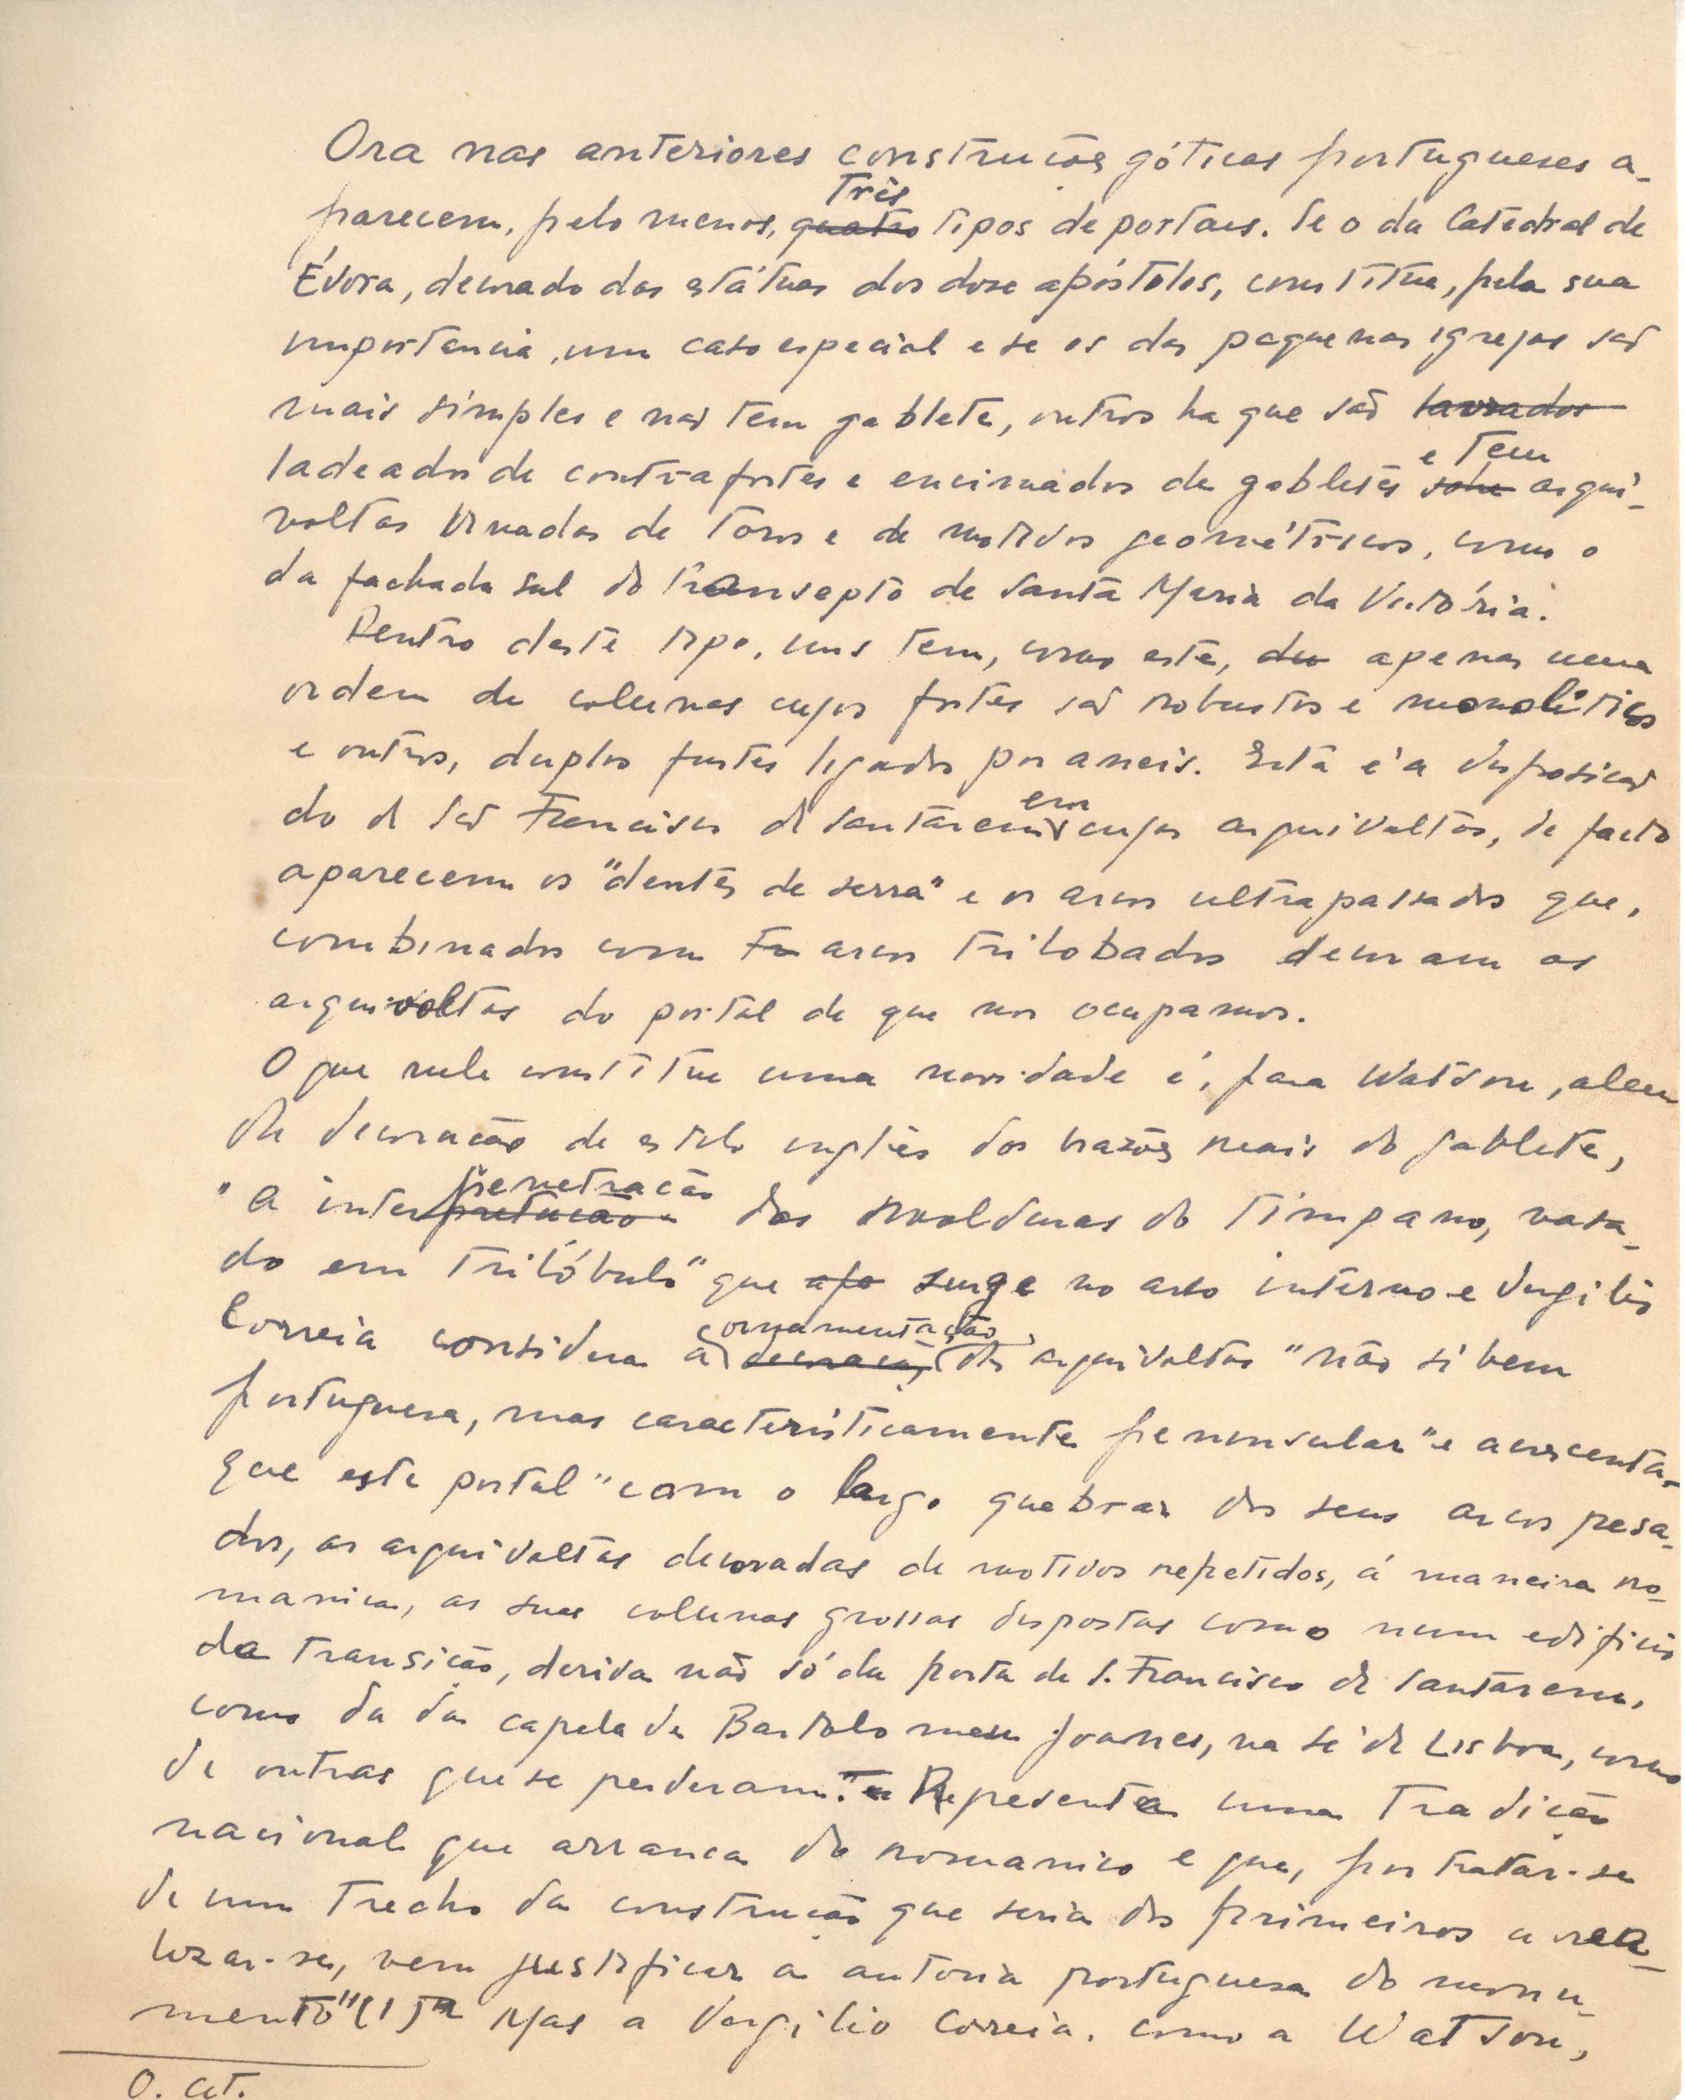 Ora nas anteriores construções góticas portugueses a-
parecem, pelo menos, quatro três tipos de portaes. Se o da Catedral de
Évora, decorado das estátuas dos doze apóstolos, constitue, pela sua
importancia, um caso especial e se os das pequenas igrejas são
mais simples e não tem gablete, outros ha que são lavrados
ladeados de contrafortes e encimados de gabletes sobre e tem arqui-
voltas ornadas de toros e de motivos geométricos, como o
da fachada sul do transepto de Santa Maria da Victória.
Dentro deste tipo, uns tem, como este, apenas uma
ordem de colunas cujos fustes são robustos e monolíticos
e outros, duplos fustes ligados por aneis. Esta é a disposição
do de São Francisco de Santarem em cujas arquivoltas, de facto
aparecem os "dentes de serra" e os arcos ultrapassados que,
combinados com arcos trilobados decoram as
arquivoltas do portal de que nos ocupamos.
O que nele constitue uma novidade é, para Watson, alem
da decoração de estilo inglês dos brazões reais do gablete,
"a interpretação penetração das molduras do tímpano, vasa-
do em trilóbulo" que apa surge no arco interno e Vergilio
Correia considera a decoração ornamentação das arquivoltas "não só bem
portuguesa, mas caracteristicamente peninsular" e acrescenta
que este portal "com o largo quebrar dos seus arcos pesa-
dos, as arquivoltas decoradas de motivos repetidos, á maneira ro-
manica, as suas colunas grossas dispostas como num edificio
da transição, deriva não só da porta de S. Francisco de Santarem,
como da da capela de Bartolomeu Joannes, na sé de Lisboa, como
de outras que se perderam. Representa uma tradição
nacional que arranca do romanico e que, por tratar-se
de um trecho da construção que seria dos primeiros a rea-
lizar-se, vem justificar a autoria portuguesa do monu-
mento"(1) Mas a Vergilio Correia, como a Watson,
O. Cit.